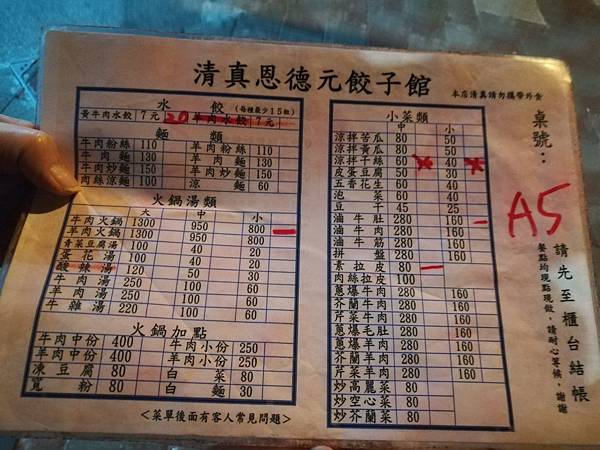 清真恩德元餃子館
本店清真請勿攜帶外食
水 餃 (每種最少15粒)
黃牛肉水餃 7元 20 羊肉水餃 7元
麵 類
牛肉粉絲 110 羊肉粉絲 110
牛肉麵 130 羊肉麵 130
牛肉炒麵 150 羊肉炒麵 150
肉絲涼麵 100 涼麵 60
火鍋湯類
大 中 小
牛肉火鍋 1300 950 800
羊肉火鍋 1300 950 800
青菜豆腐湯 100 40 20
蛋花湯 100 40 20
酸辣湯 120 50 30
牛肉湯 250 100 60
羊肉湯 250 100 60
牛雜湯 220 100 60
火鍋加點
牛肉中份 400 牛肉小份 250
羊肉中份 400 羊肉小份 250
凍豆腐 80 白菜 80
寬粉 80 白麵 30
<菜單後面有客人常見問題>
小菜類
中 小
涼拌苦瓜 80 50
涼拌黃瓜 80 50
涼拌干絲 60 40
皮蛋豆腐 50 30
五香花生 60 40
泡菜 60 40
豆干 45 25
滷牛肚 280 160
滷牛肉 280 160
滷牛筋 280 160
拼盤 280 160
素拉皮 80
肉絲拉皮 100
蔥爆牛肉 280 160
芥蘭牛肉 280 160
芹菜牛肉 280 160
蔥爆毛肚 280 160
蔥爆羊肉 280 160
芥蘭羊肉 280 160
芹菜羊肉 280 160
炒高麗菜 80
炒空心菜 80
炒芥蘭菜 80
桌號:
A5
請先至櫃台結帳
餐點均現點現做,請耐心等候,謝謝